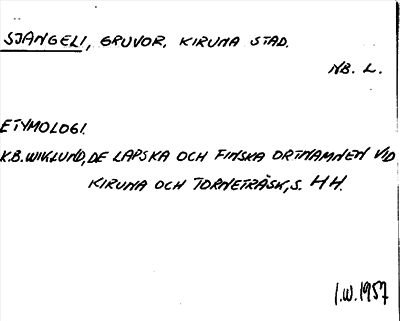 SJANGELI, GRUVOR, KIRUNA STAD.
NB. L.
ETYMOLOGI.
K.B. WIKLUND, DE LAPSKA OCH FINSKA ORTNAMNEN VID
KIRUNA OCH TORNETRÄSK, S. HH.
I.W. 1957